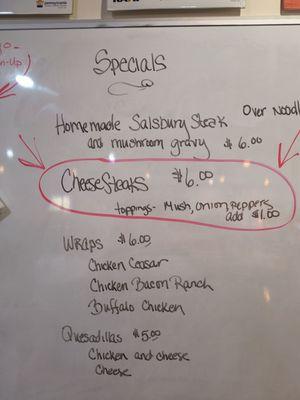 pennsylvania
Specials
Over Noodl
Homemade Salsbury Steak
and mushroom gravy $6.00
CheeseSteaks $6.00
toppings - Mush, onion, Peppers
add $1.00
Wraps $6.00
Chicken Ceasar
Chicken Bacon Ranch
Buffalo Chicken
Quesadillas $5.00
Chicken and cheese
Cheese